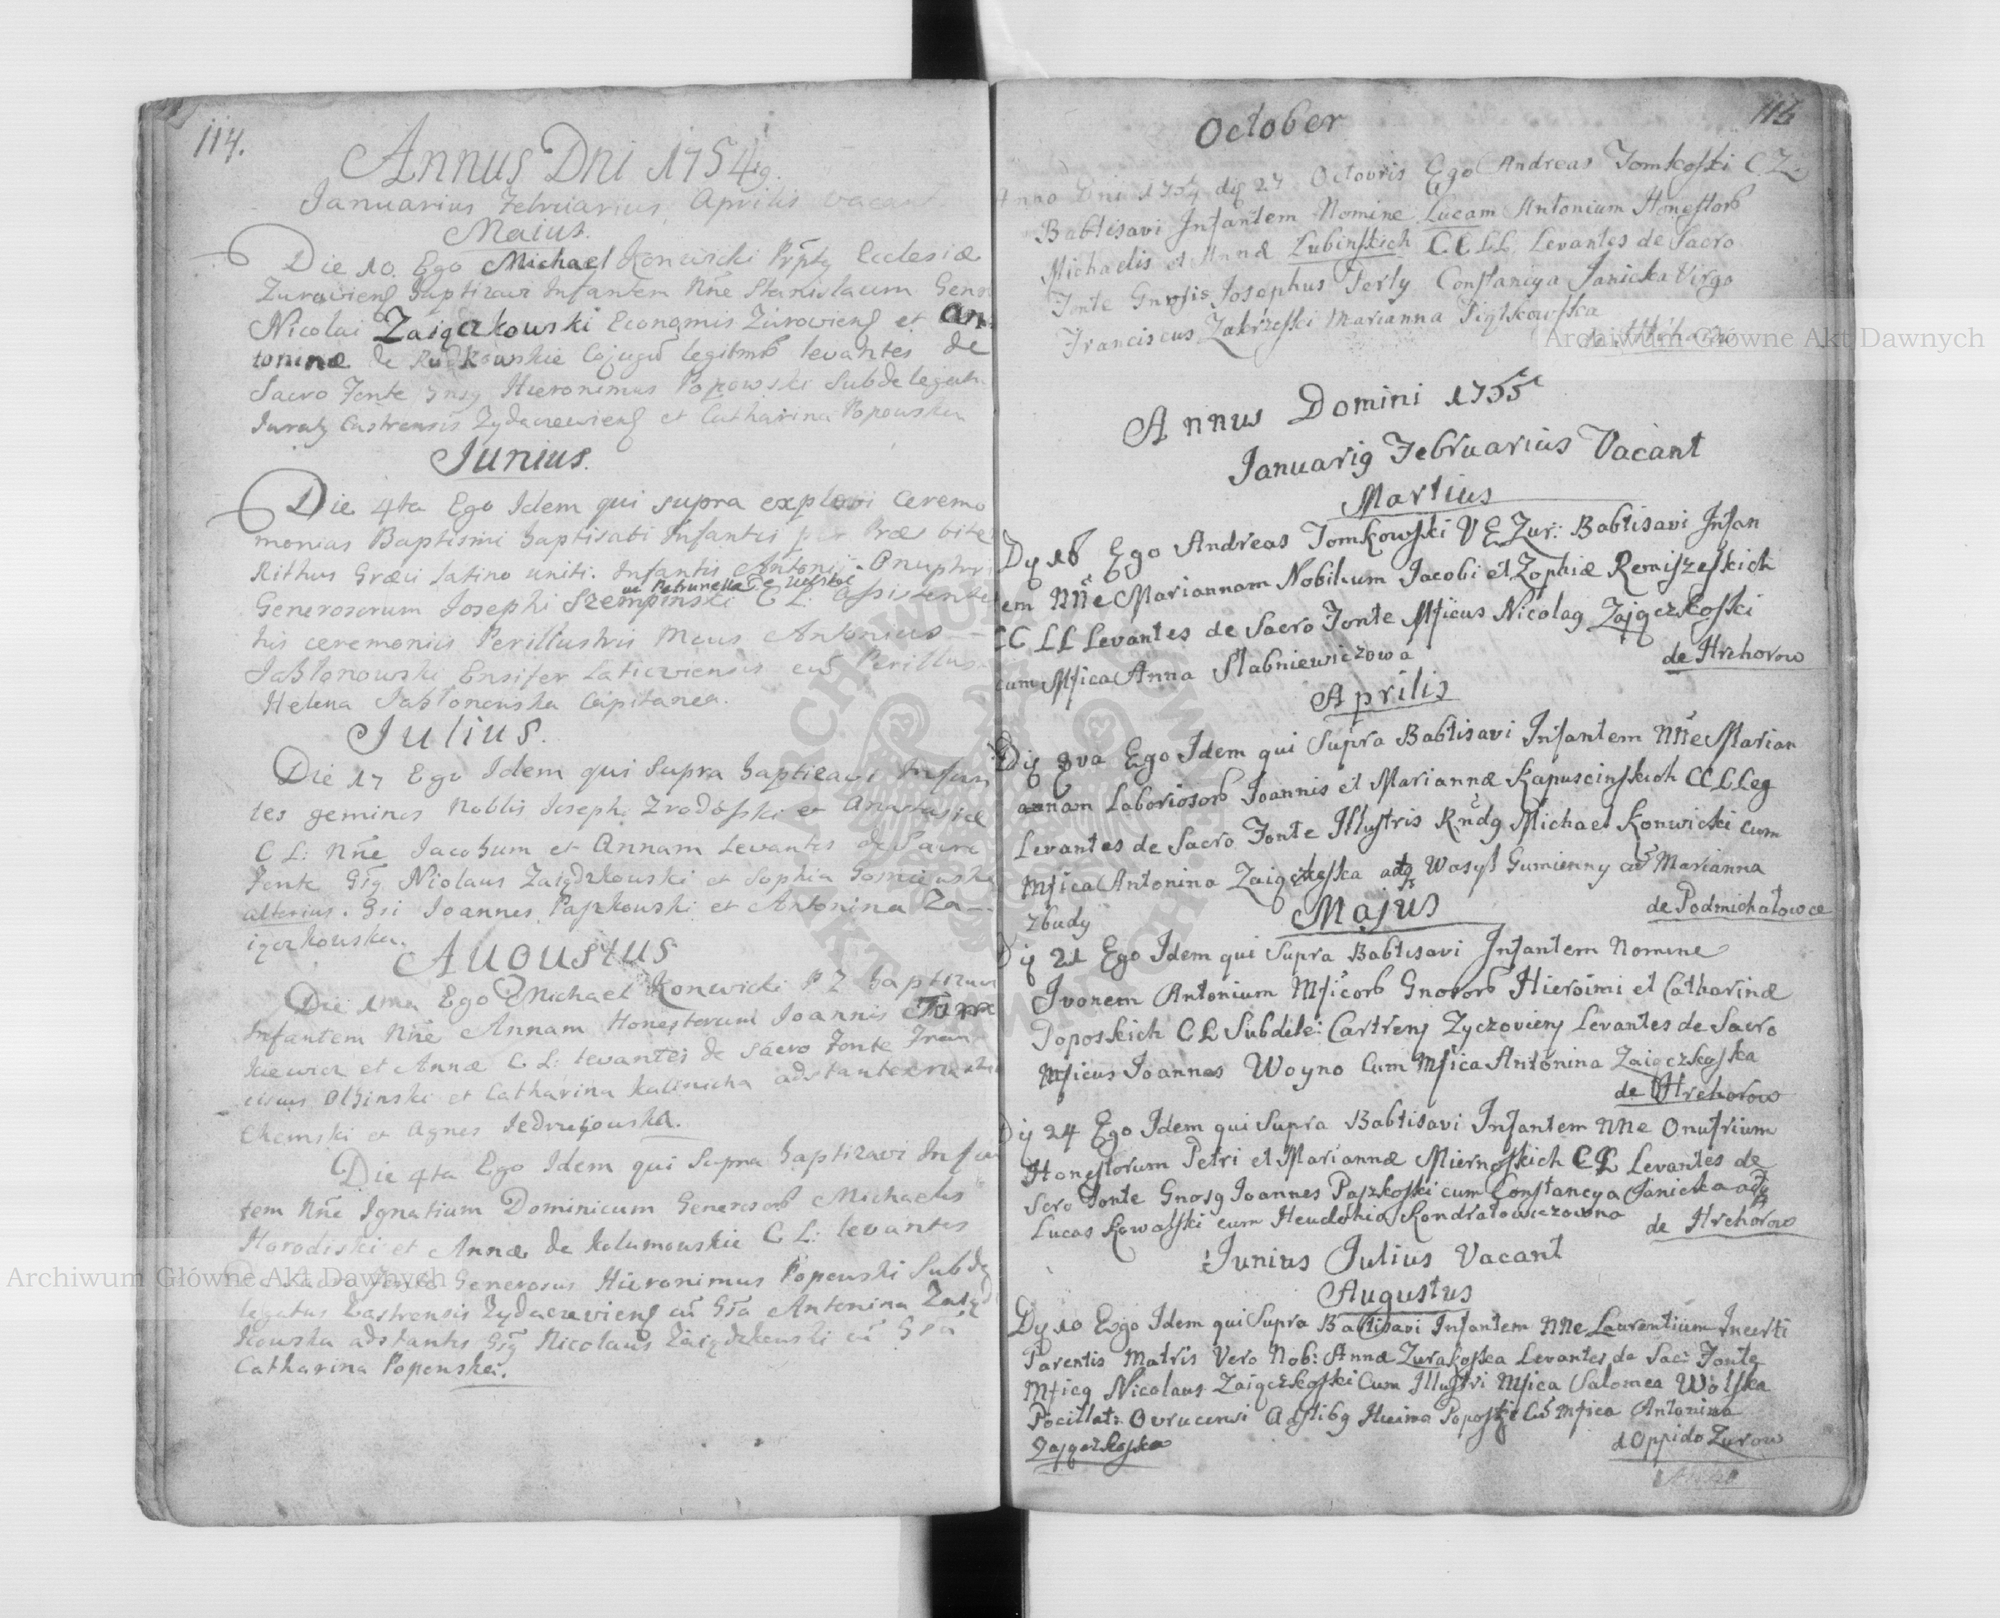 114.
Annus Dni 1754.
Januarius Februarius Aprilis vacant
Maius.
Die 10. Ego Michael Konwicki Ecclesiæ
baptizavi Infantem Nne Stanislaum
Nicolai Zaigąkowski Economis Zuroviens et An
toninæ de legitmb levantes de
Sacro Fonte Hieronimus Popowski Subdelegatu
Castrensis et Catharina Popowska
Junius.
Die 4ta Ego Idem qui supra explevi Ceremo
monias Baptismi baptisati Infantis per
Rithus Græci latino uniti. Infantis Antonij Onuphri
et Petronella de Wolskie
Generosorum Josephi Szempinski C L: assistente
his ceremoniis Perillustris Mcus Antonius
Jabłonowski Ensifer Laticzviensis cu Perillus
Helena Jabłonowska Capitanea.
Julius.
Die 17 Ego Idem qui Supra baptizavi Infan
tes geminos Noblis Joseph et Anastasiæ
C L: Nne Jacobum et Annam Levantes de Sacro
Fonte Gsg Niolaus Zaigdzkowski et Sophia
alterius. Gsi Joannes Papkowski et Antonina Za-
igczkowska.
Augustus
Die 1ma Ego Michael Konwicki P Z baptizavi
Infantem Nne Annam Honestorum Joannis
et Annæ C L: levantes de Sacro Fonte Fran
ciscus Olbinski et Catharina Kalinicha adstantes
Chemski et Agnes
Die 4ta Ego Idem qui Supra baptizavi Infan
tem Nne Ignatium Dominicum Generosob Michaelis
Horodiski et Annæ de Kolumowskie C L: levantes
de Sacro Fonte Generosus Hieronimus Popowski Subde
legatus Castrensis Zydaczeviens cu Gsa Antonina Zaigd
kowska adstantes Gsg Nicolaus Zaigdzkowski cu Gsa
Catharina Popowska.
October
115
Anno Dni 1754 dig 27 Octovris Ego Andreas Tomkoski C. Z.
Babtisavi Infantem Nomine Lucam Antonium Honestorb
Michaelis et Annæ Lubinskich CC LL Levantes de Sacro
Fonte Josephus Ferly Constancya Janicka Virgo
Franciscus Zakrzeski Marianna Piątkowska
Annus Domini 1755
Januarig Februarius Vacant
Martius
Dig 16 Ego Andreas Tomkowski V E Zur: Babtisavi Infan
tem Nne Mariannam Nobilium Jacobi et Zophiæ Remiszeskich
CC LL Levantes de Sacro Fonte Mficus Nicolag Zaiączkoski
cum Mfica Anna Słabniewiczowa
de Hrehorow
Aprilis
Dig 8va Ego Idem qui Supra Babtisavi Infantem Nne Marian
annam Laboriosorb Joannis et Mariannæ Kapuscinskich CC LLeg
Levantes de Sacro Fonte Illustris Rndg Michael Konwicki cum
Mfica Antonina Zaiączkoska adg Wasyl Gumienny cu Marianna
zbudy
de Podmichałowce
Majus
Dig 21 Ego Idem qui Supra Babtisavi Infantem Nomine
Ivonem Antonium Mficorb Gnororb Hieroimi et Catharinæ
Poposkich C L Subdele: Castrens Zyczoviens Levantes de Sacro
Mficus Joannes Woyno Cum Mfica Antonina Zaiączkoska
de Hrehorow
Dig 24 Ego Idem qui Supra Babtisavi Infantem Nne Onufrium
Honestorum Petri et Mariannæ Miernoskich CC L Levantes de
Scro Fonte Gnosg Joannes Paszkoski cum Constancya Janicka adg
Lucas Kowalski cum Heudokia Kondratowiczowna
de Hrehorow
Junius Julius Vacant
Augustus
Dig 10 Ego Idem qui Supra Babtisavi Infantem Nne Laurentium Incerti
Parentis Matris Vero Nob: Annæ Zurakoska Levantes de Sac: Fonte
Mficg Nicolaus Zaiączkoski Cum Illustri Mfica Salomea Wolska
Pocillat: Ovrucensi Astibg Poposki Cu Mfica Antonina
Zaiączkoska
d Oppido Zurow
Archiwum Główne Akt Dawnych
Archiwum Główne Akt Dawnych